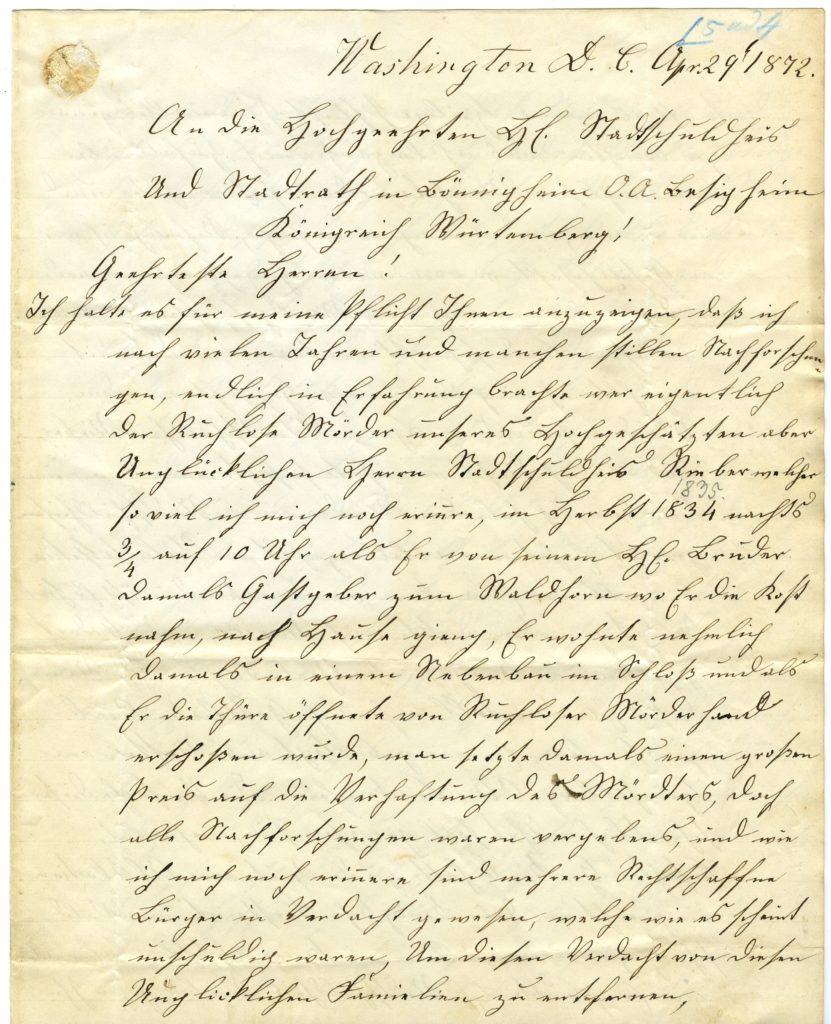 15 und 4
Washington D. C. Apr. 29t 1872.
An die Hochgeehrten HE. Stadtschuldheis
Und Stadtrath in Bönnigheim O. A. Besigheim
Königreich Würtemberg!
Geehrteste Herren!
Ich halte es für meine Pflicht Ihnen anzuzeigen, daß ich
nach vielen Jahren und manchen stillen Nachforschun-
gen, endlich in Erfahrung brachte wer eigentlich
der Ruchlose Mörder unseres Hochgeschätzten aber
Unglücklichen Herrn Stadtschuldheis Rieber welcher
1835.
so viel ich mich noch erinre, im Herbst 1834 nachts
3/4 auf 10 Uhr als Er von seinem HE. Bruder
damals Gastgeber zum Waldhorn wo Er die Kost
nahm, nach Hause gieng, Er wohnte nehmlich
damals in einem Nebenbau im Schloß und als
Er die Thüre öffnete von Ruchloser Mörderhand
erschoßen wurde, man setzte damals einen großen
Preis auf die Verhaftung des Mördters, doch
alle Nachforschungen waren vergebens, und wie
ich mich noch erinnere sind mehrere Rechtschaffne
Bürger in Verdacht gewesen, welche wie es scheint
unschuldig waren, Um diesen Verdacht von diesen
Unglicklichen Familien zu entfernen,